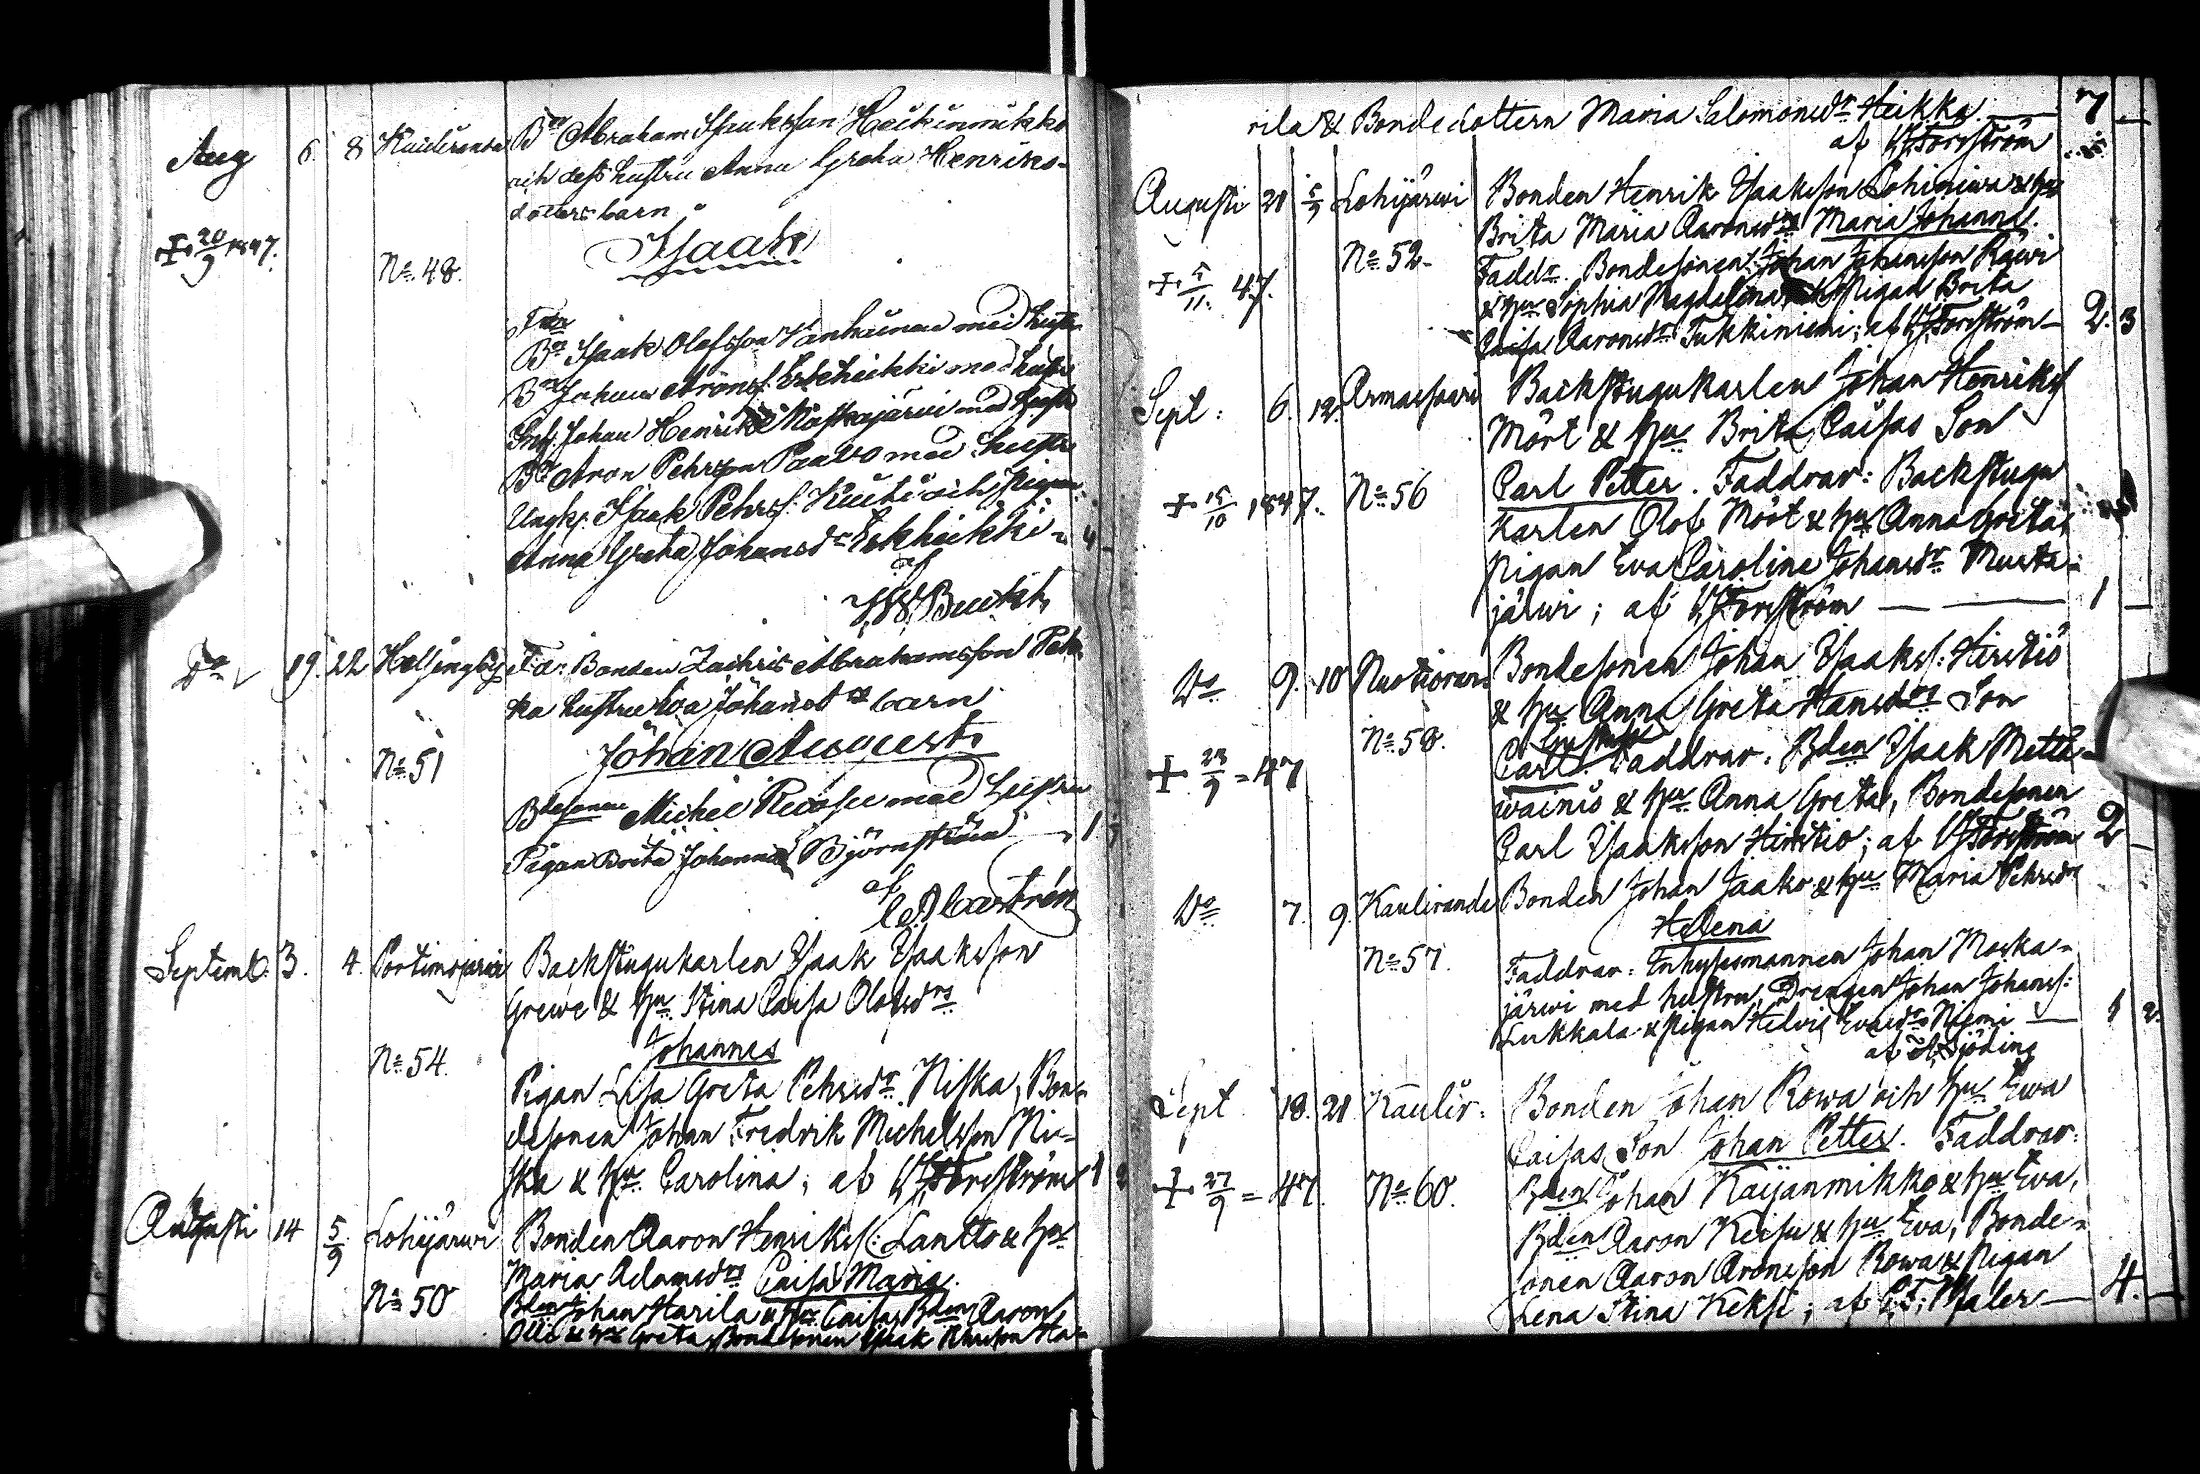 Aug 6. 8 Kuiviranda Bn Abraham Isaaksson Heikinmikko
och dess hustru Anna Greta Henriks-
dotters barn
+ 20/9 1847.
No 48. Isaak
Fdr
Bn Isaak Olofsson Vanhainen med hustru
Bn Johan Aronss. Erkheikki med hustru
Inh. Johan Henriks Naskajärvi med hustru
Bn Aron Pehrsson Paavo med hustru
Ungk. Isaak Pehrss. och Pigan
Anna Greta Johansdr Erkheikki 4 -
af
Do 19. 22 Helsingby Bonden Zachris Abrahamsson
hustru Eva Johansdrs barn
Johan August
No 51
Bdesonen Michel med hustru
Pigan Brita Johanna Björnström 1
af
Castrén
Septemb. 3. 4. Portimojärvi Backstugukarlen Isaak Isaaksson
Grewe & hu Stina Caisa Olofsdrs
Johannes
No 54.
Pigan Lisa Greta Pehrsdr Niska, Bon-
desonen Johan Fredrik Michelsson Ni-
ska & hu Carolina; af Forsström 1 2
Augusti 14 5/9 Lohijärwi Bonden Aaron Henrikss: Lantto & hus
Maria Adamsdrs Caisa Maria.
No 50 Bden Johan Harila & hu Caisa, Bden Aaron
Olli & hu Greta, Bondesonen Isaak Ha-
rila & Bondedottern Maria Salomonsdr Heikka. 7 -
af Forsström
Augusti 21 5/9 Lohijärwi Bonden Henrik Isaaksson & hus
Brita Maria Aaronsdrs Maria Johanna.
No 52. Faddr. Bondesonen Johan Johansson Räwi
+ 5/11. 47. & hu Sophia Magdelena Pigan Brita
Caisa Aaronsdr Tukkiniemi; af Forsström 2. 3
Sept: 6. 12. Armassaari Backstugukarlen Johan Henrikss
Mört & hu Brita Caisas Son
+ 15/10 1847. No 56 Carl Petter. Faddrar: Backstugu
karlen Olof Mört & hu Anna Greta,
Pigan Eva Carolina Johansdr Musta-
järwi; af Forsström 1 -
Do 9. 10 Nuotiorand Bondesonen Johan Isaakss: Hirstiö
& hu Anna Greta Hansdrs Son
No 58. Carl Gustaf Faddrar. Bden Isaak Mella-
+ 23/9 = 47 wainio & hu Anna Greta, Bondesonen
Carl Isaaksson Hirstiö; af Forsström 2 -
Do 7. 9. Kaulirande Bonden Johan Jaako & hu Maria Pehrsdr
Helena
No 57. Faddrar: Inhysesmannen Johan Maska-
järwi med hustru, Drengen Johan Johanss:
Lukkala & Pigan Hedvig Evasdr Niemi 1 2.
af Sjöding
Sept 18. 21 Kaulir: Bonden Johan Rowa och hu Ewa
Caisas Son Johan Petter. Faddrar:
+ 27/9 = 47. No 60. Bden Johan Kaijanmikko & hu Eva,
Bden Aaron Keisu & hu Eva, Bonde-
sonen Aaron Aronsson Rowa & Pigan
Lena Stina Keksi; af 4. -